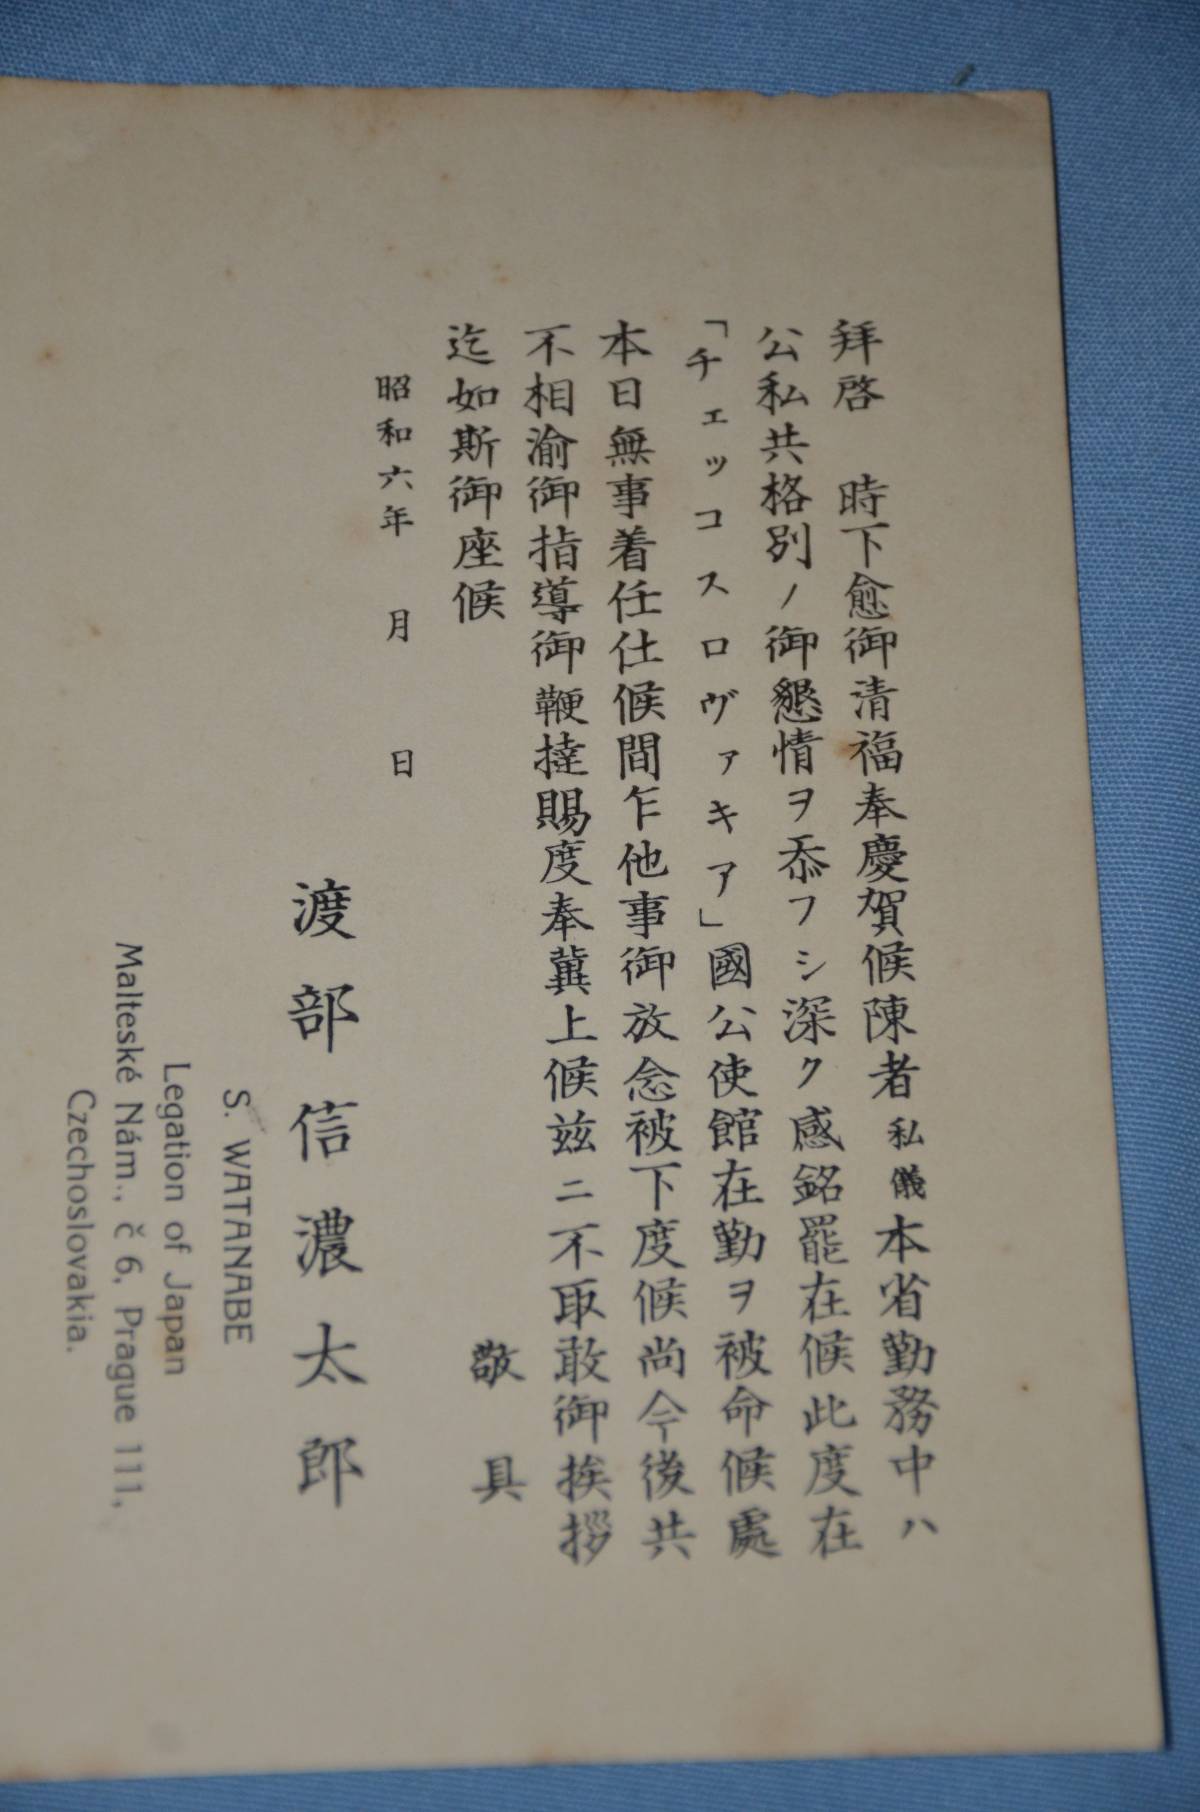 拝啓　時下愈御清福奉慶賀候陳者私儀本省勤務中ハ
公私共格別ノ御懇情ヲ忝フシ深ク感銘罷在候此度在
「チェッコスロヴァキア」國公使館在勤ヲ被命候處
本日無事着任仕候間乍他事御放念被下度候尚今後共
不相渝御指導御鞭撻賜度奉冀上候茲ニ不取敢御挨拶
迄如斯御座候
敬具
昭和六年　月　日
渡部信濃太郎
S. WATANABE
Legation of Japan
Malteské Nám., č 6, Prague 111,
Czechoslovakia.